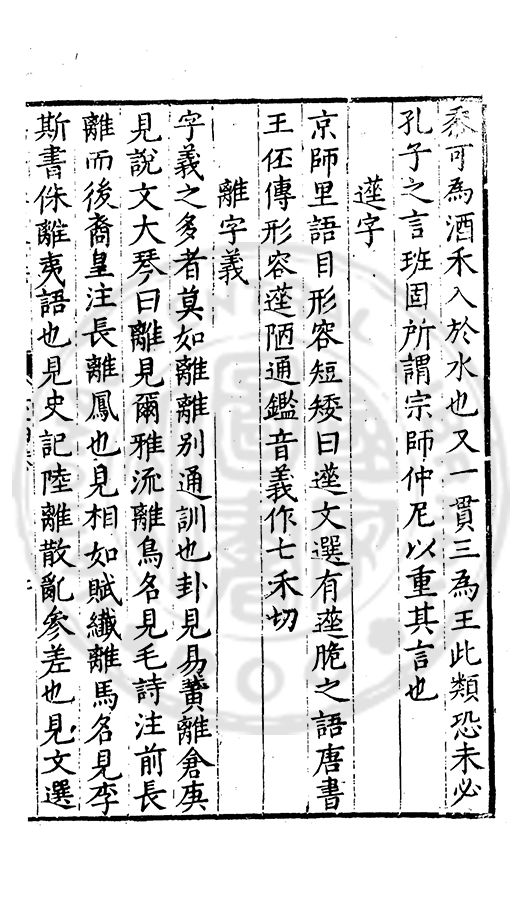 黍可為酒禾入於水也又一貫三為王此類恐未必
孔子之言班固所謂宗師仲尼以重其言也
蓌字
京師里語目形容短矮曰蓌文選有蓌脆之語唐書
王伾傳形容蓌陋通鑑音義作七禾切
離字義
字義之多者莫如離離別通訓也卦見易黃離倉庚
見說文大琴曰離見爾雅流離鳥名見毛詩注前長
離而後裔皇注長離鳳也見相如賦纖離馬名見李
斯書侏離夷語也見史記陸離散亂參差也見文選